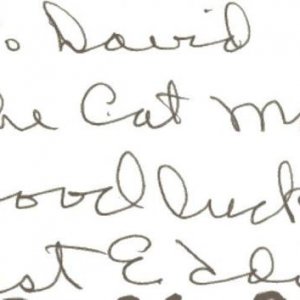 o. David
he Cat M
ood luck
st Edda